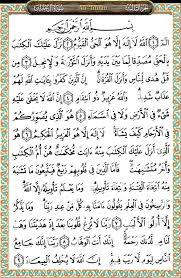 بِسْمِ اللَّهِ الرَّحْمَٰنِ الرَّحِيمِ
الٓمٓ ١ اللَّهُ لَا إِلَٰهَ إِلَّا هُوَ الْحَيُّ الْقَيُّومُ ٢ نَزَّلَ عَلَيْكَ الْكِتَٰبَ
بِالْحَقِّ مُصَدِّقًا لِّمَا بَيْنَ يَدَيْهِ وَأَنزَلَ التَّوْرَىٰةَ وَالْإِنجِيلَ ٣
مِن قَبْلُ هُدًى لِّلنَّاسِ وَأَنزَلَ الْفُرْقَانَ إِنَّ الَّذِينَ كَفَرُوا بِـَٔايَٰتِ اللَّهِ لَهُمْ
عَذَابٌ شَدِيدٌ وَاللَّهُ عَزِيزٌ ذُو انتِقَامٍ ٤ إِنَّ اللَّهَ لَا يَخْفَىٰ عَلَيْهِ
شَيْءٌ فِي الْأَرْضِ وَلَا فِي السَّمَاءِ ٥ هُوَ الَّذِي يُصَوِّرُكُمْ
فِي الْأَرْحَامِ كَيْفَ يَشَاءُ لَا إِلَٰهَ إِلَّا هُوَ الْعَزِيزُ الْحَكِيمُ ٦
هُوَ الَّذِي أَنزَلَ عَلَيْكَ الْكِتَٰبَ مِنْهُ ءَايَٰتٌ مُّحْكَمَٰتٌ هُنَّ أُمُّ الْكِتَٰبِ
وَأُخَرُ مُتَشَٰبِهَٰتٌ فَأَمَّا الَّذِينَ فِي قُلُوبِهِمْ زَيْغٌ فَيَتَّبِعُونَ
مَا تَشَٰبَهَ مِنْهُ ابْتِغَاءَ الْفِتْنَةِ وَابْتِغَاءَ تَأْوِيلِهِ وَمَا يَعْلَمُ تَأْوِيلَهُ إِلَّا اللَّهُ
وَالرَّٰسِخُونَ فِي الْعِلْمِ يَقُولُونَ ءَامَنَّا بِهِ كُلٌّ مِّنْ عِندِ رَبِّنَا وَمَا يَذَّكَّرُ
إِلَّا أُولُوا الْأَلْبَٰبِ ٧ رَبَّنَا لَا تُزِغْ قُلُوبَنَا بَعْدَ إِذْ هَدَيْتَنَا وَهَبْ
لَنَا مِن لَّدُنكَ رَحْمَةً إِنَّكَ أَنتَ الْوَهَّابُ ٨ رَبَّنَا إِنَّكَ جَامِعُ
النَّاسِ لِيَوْمٍ لَّا رَيْبَ فِيهِ إِنَّ اللَّهَ لَا يُخْلِفُ الْمِيعَادَ ٩